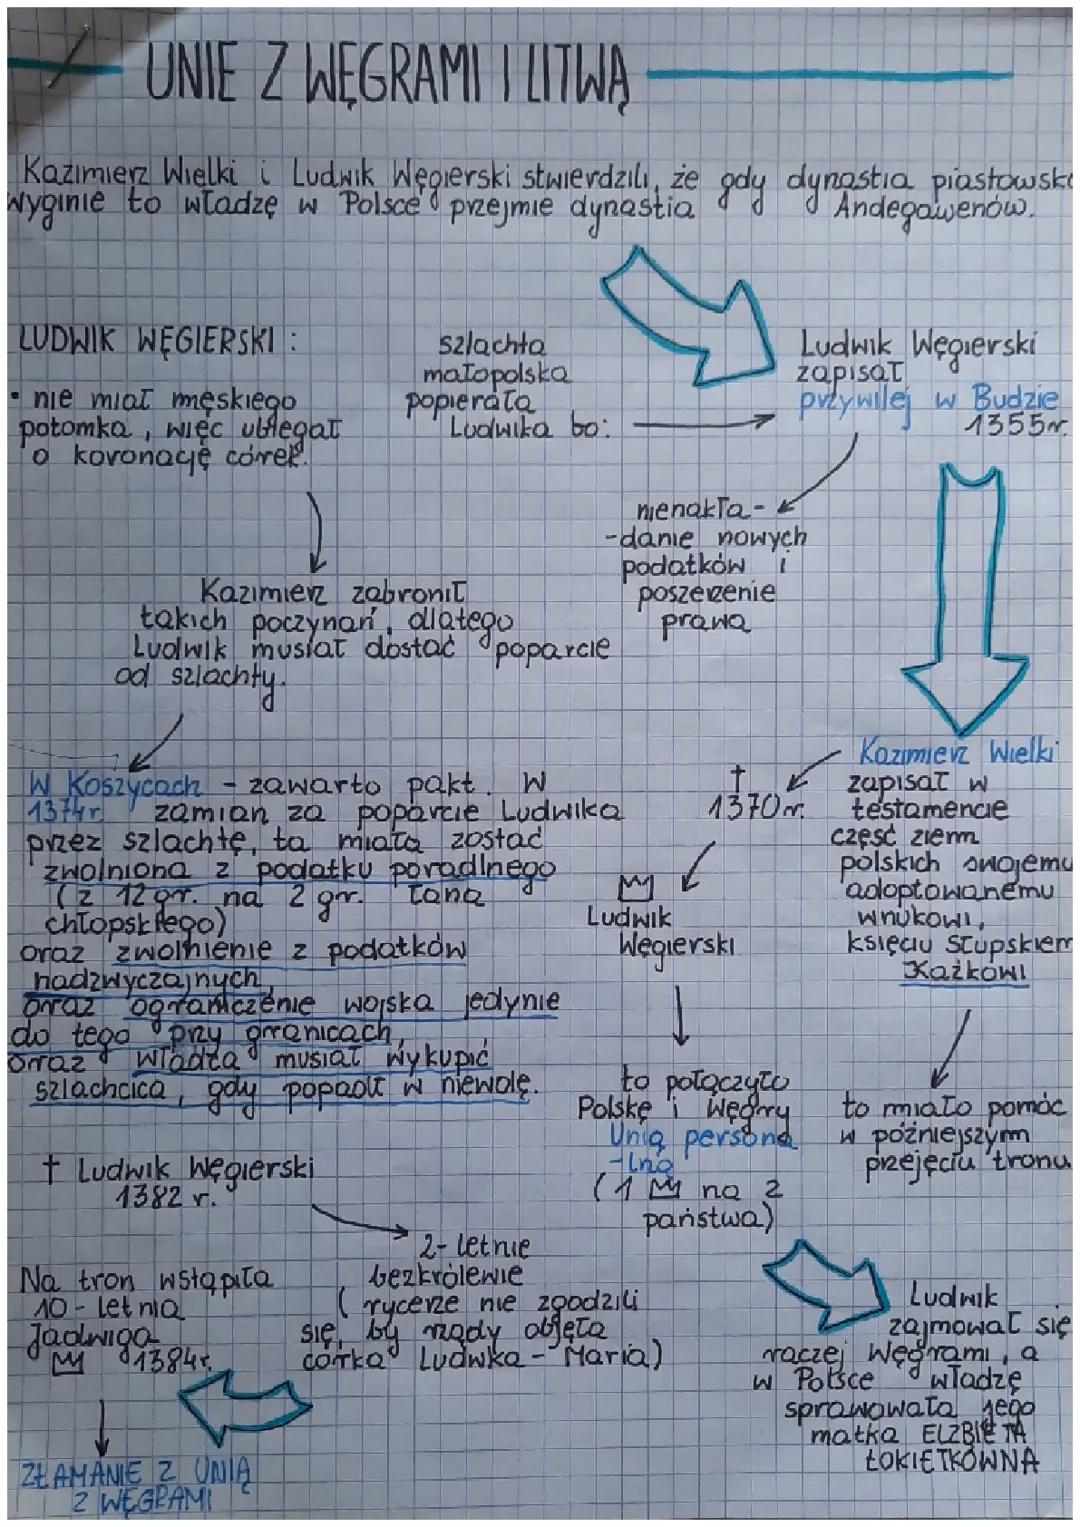 UNIE Z WĘGRAMI I LITWĄ
Kazimierz Wielki i Ludwik Węgierski stwierdzili, że gdy dynastia piastowska
wyginie to władzę w Polsce przejmie dynastia Andegawenów.
LUDWIK WĘGIERSKI :
• nie miał męskiego
potomka, więc ubiegał
o koronację córek.
szlachta
małopolska
popierała
Ludwika bo:
Ludwik Węgierski
zapisał
przywilej w Budzie
1355r.
nienakła-
-danie nowych
podatków i
poszerzenie
prawa
Kazimierz zabronił
takich poczynań, dlatego
Ludwik musiał dostać poparcie
od szlachty.
W Koszycach - zawarto pakt. W
1374r. zamian za poparcie Ludwika
przez szlachtę, ta miała zostać
zwolniona z podatku poradlnego
(z 12 gr. na 2 gr. łana
chłopskiego)
oraz zwolnienie z podatków
nadzwyczajnych,
oraz ograniczenie wojska jedynie
do tego przy granicach,
oraz władca musiał wykupić
szlachcica, gdy popadł w niewolę.
Kazimierz Wielki
zapisał w
testamencie
część ziem
polskich swojemu
adoptowanemu
wnukowi,
księciu słupskiem
Kaźkowi
† 1370 r.
Ludwik
Węgierski
to połączyło
Polskę i Węgry
Unią persona
-lną
(1 na 2
państwa)
to miało pomóc
w późniejszym
przejęciu tronu
† Ludwik Węgierski
1382 r.
2-letnie
bezkrólewie
(rycerze nie zgodzili
się, by rządy objęła
córka Ludwka - Maria)
Na tron wstąpiła
10-letnia
Jadwiga
1384r.
ZŁAMANIE Z UNIĄ
Z WĘGRAMI
Ludwik
zajmował się
raczej Węgrami, a
w Polsce władzę
sprawowała jego
matka ELŻBIETA
ŁOKIETKÓWNA